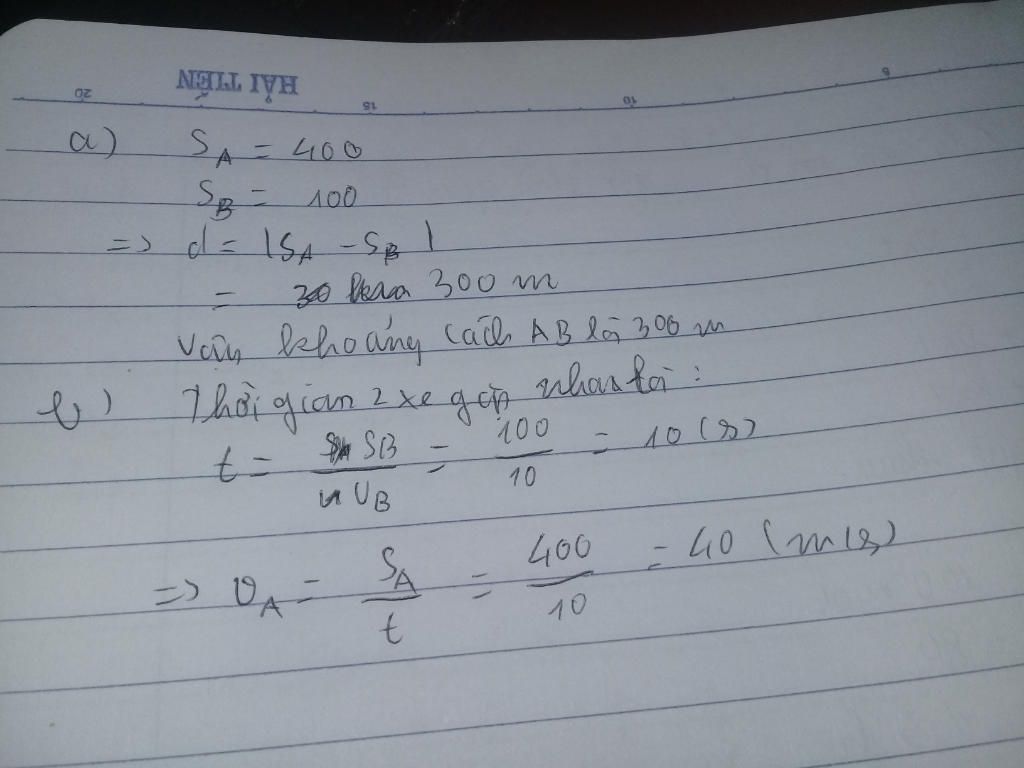 HẢI TIẾN
20 15 10 5
a) S_A = 400
S_B = 100
=> d = |S_A - S_B|
= 300 m
Vậy khoảng cách AB là 300 m
b) Thời gian 2 xe gặp nhau là:
t = SB / v_B = 100 / 10 = 10 (s)
=> v_A = S_A / t = 400 / 10 = 40 (m/s)